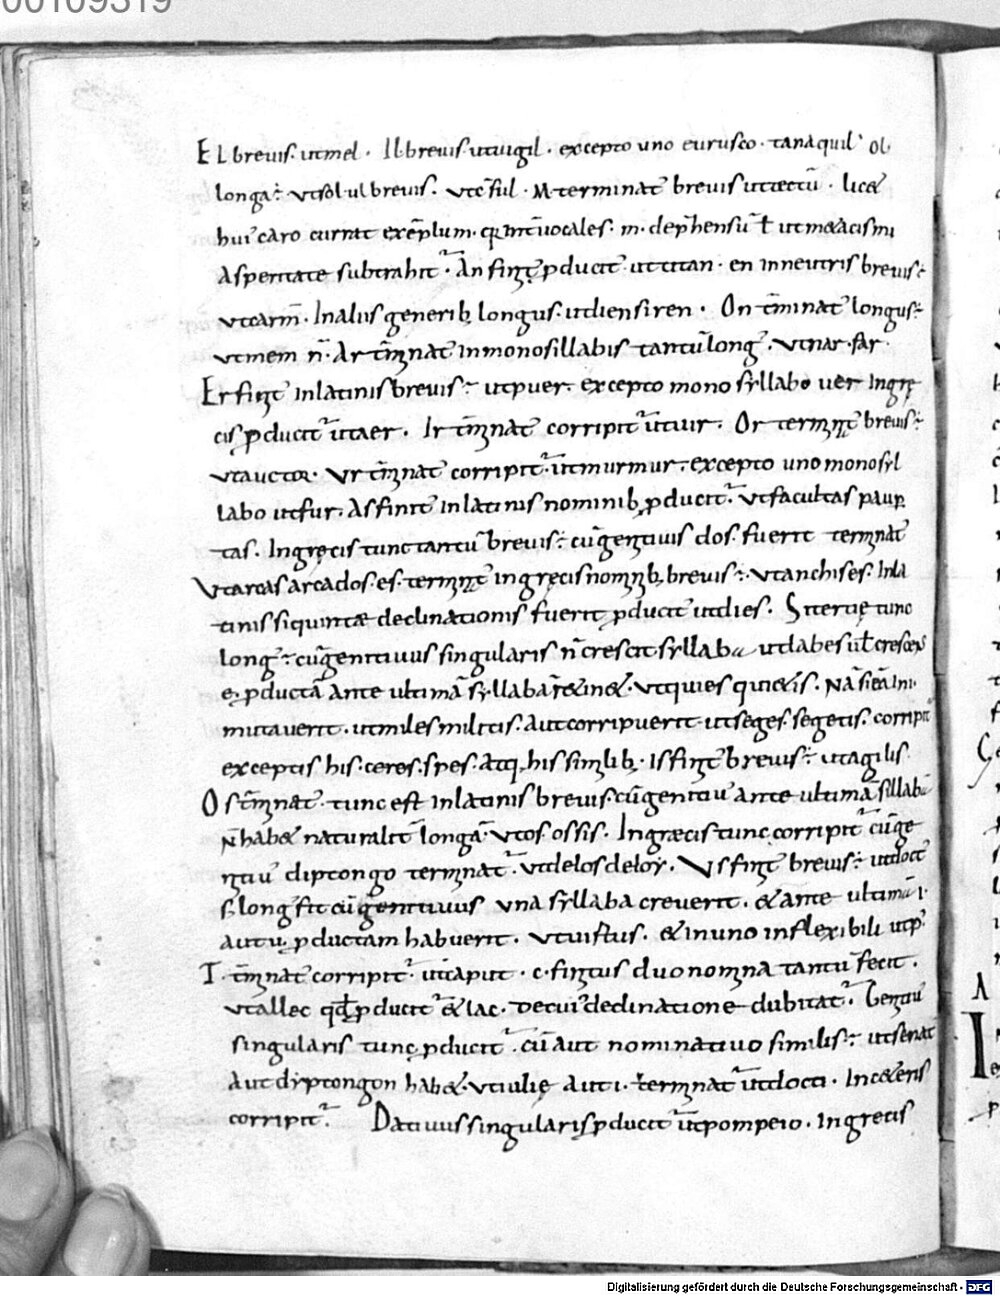 00109319
EL breuis. ut mel. Il breuis ut uigil. excepto uno eurusco. tanaquil. ol
longať. ut sol ul breuis. ut c̄sul. M terminat̄ breuis ut tectū. lic&
hui᾽ caro currat exēplum. inť uocales. m. dep̄hensū ł ut m&acismi
asperitate subtrahit᾽. An finit᾽ ꝓducit᾽ ut titan. en in neutris breuis÷
ut carm̄. In aliis generib; longus. ut dien siren. On t̄minat᾽ longus÷
ut mem n̄. Ar t̄minat᾽ in monosillabis tantū long᾽. ut nar. far.
Er finit᾽ in latinis breuis÷ ut puer. excepto mono syllabo uer In grę
cis ꝓducit᾽ ut aer. Ir t̄minat᾽ corripit᾽ ut uir. Or terminat᾽ breuis÷
ut auctor. Vr t̄minat᾽ corripit᾽ ut murmur. excepto uno monosyl
labo ut fur. As finit᾽ in latinis nominib; ꝓducit᾽. ut facultas paup̱
tas. In gręcis tunc tantū breuis÷ cū genitiuus dos. fuerit terminat᾽
Vt arcas arcados. es. terminat᾽ in gręcis nominib; breuis÷. ut anchises. In la
tinis si quintæ declinationis fuerit ꝓducit᾽ ut dies. Si tertię tunc
long᾽÷ cū genitiuus singularis n̄ crescit syllaba ut labes uł crescens
e. ꝓductā ante ultimā syllabā r&in&. ut quies qui&is. Nā si eā in i.
mutauerit. ut miles militis. aut corripuerit ut seges. segetis. corripit᾽
exceptis his. ceres. spes. atq; his similib;. Is finit᾽ breuis÷ ut agilis.
Os t̄minat᾽. tunc est in latinis breuis. cū genitiu᾽ ante ultimā sillabā
n̄ hab& naturalit̄ longā. ut os. ossis. In græcis tunc corripit᾽ cū ge
nitiu᾽ diptongo terminat᾽. ut delos deloy. Vs finit᾽ breuis÷ ut doct᾽
s; long᾽ fit cū genitiuus una syllaba creuerit. & ante ultimā i
aut u. ꝓductam habuerit. ut uirtus. & in uno inflexibili ut
T. t̄minat᾽ corripit᾽. ut caput. c. finitus duo nomina tantū fecit.
ut allec qđ ꝓducit᾽ & lac. De cui᾽ declinatione dubitat᾽. Genitiu᾽
singularis tunc ꝓducit᾽. cū aut nominatiuo similis÷ ut senat᾽
aut dyptongon hab&. ut iulię aut i. terminat᾽ ut docti. In c&eris
corripit᾽. Datiuus singularis ꝓducit᾽ ut pompeio. In grecis
Digitalisierung gefördert durch die Deutsche Forschungsgemeinschaft - DFG